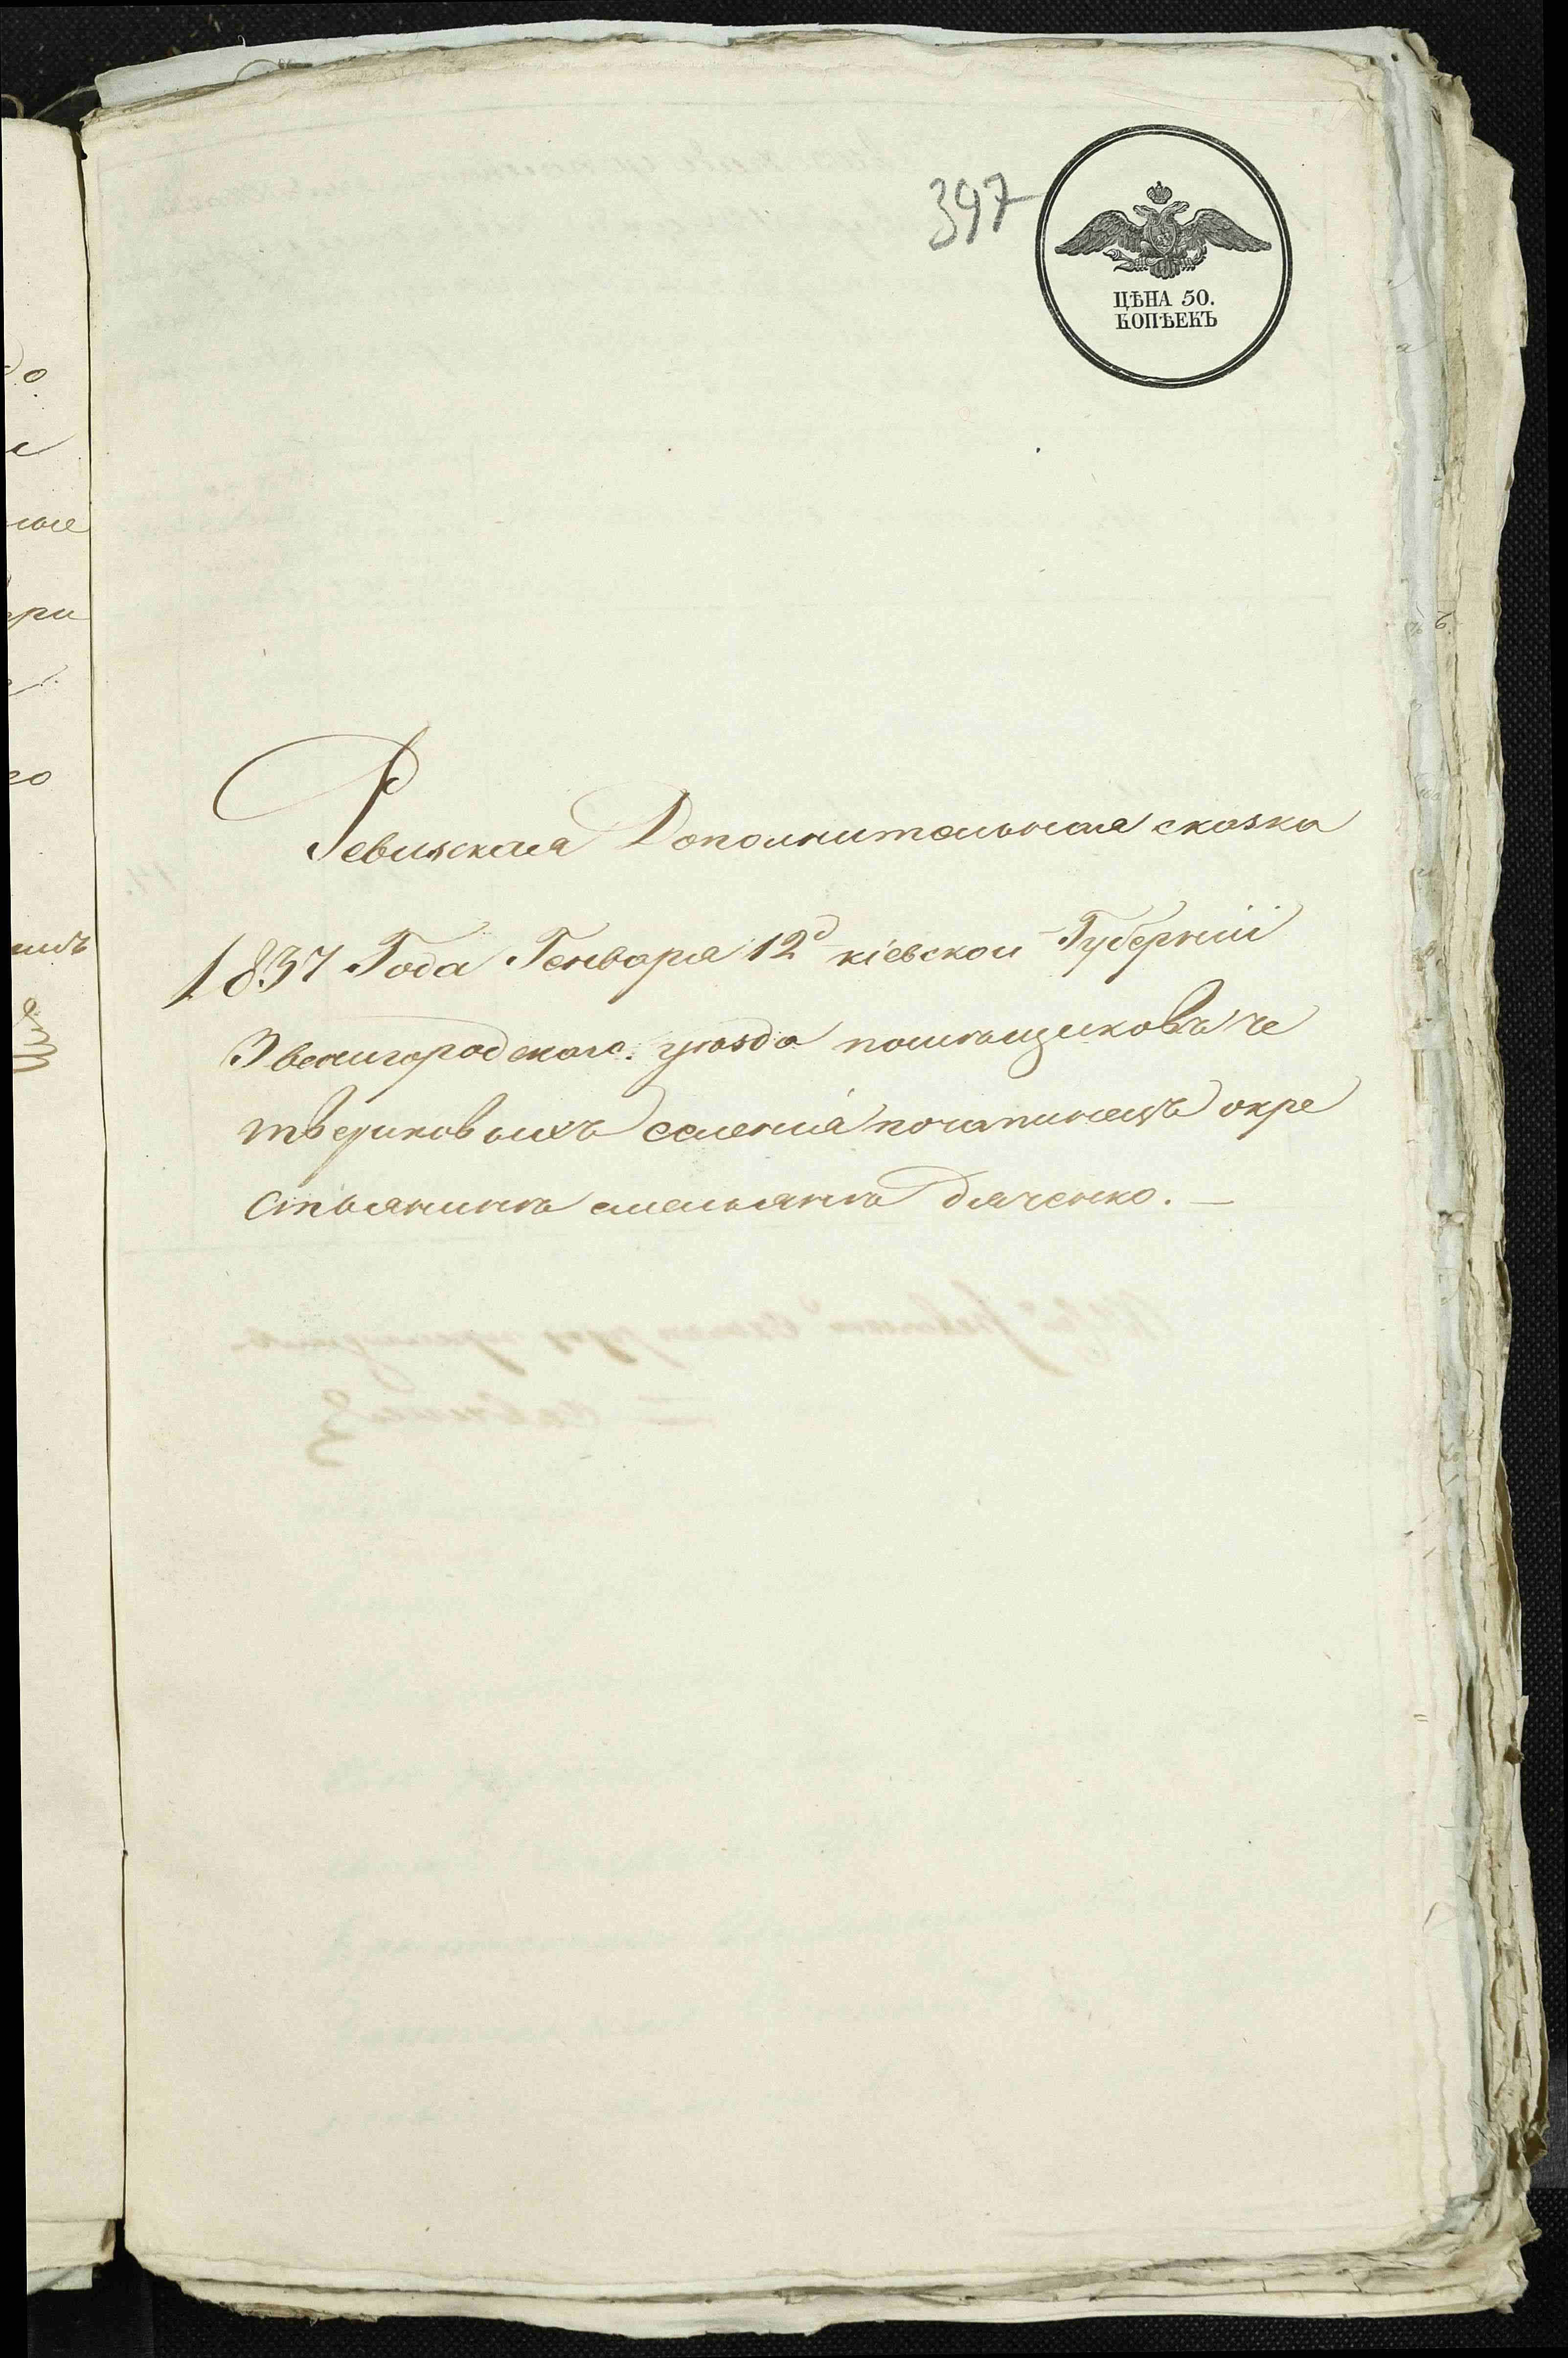 397
ЦѢНА 50.
КОПѢЕКЪ
Ревизская Дополнительная сказка
1837 Года Генваря 12д кіевской Губерніи
Звенигородского уѣзда помѣщиковъ че
твериковыхъ селенія почапинецъ окре
стьянинѣ емельянѣ дяченко. —